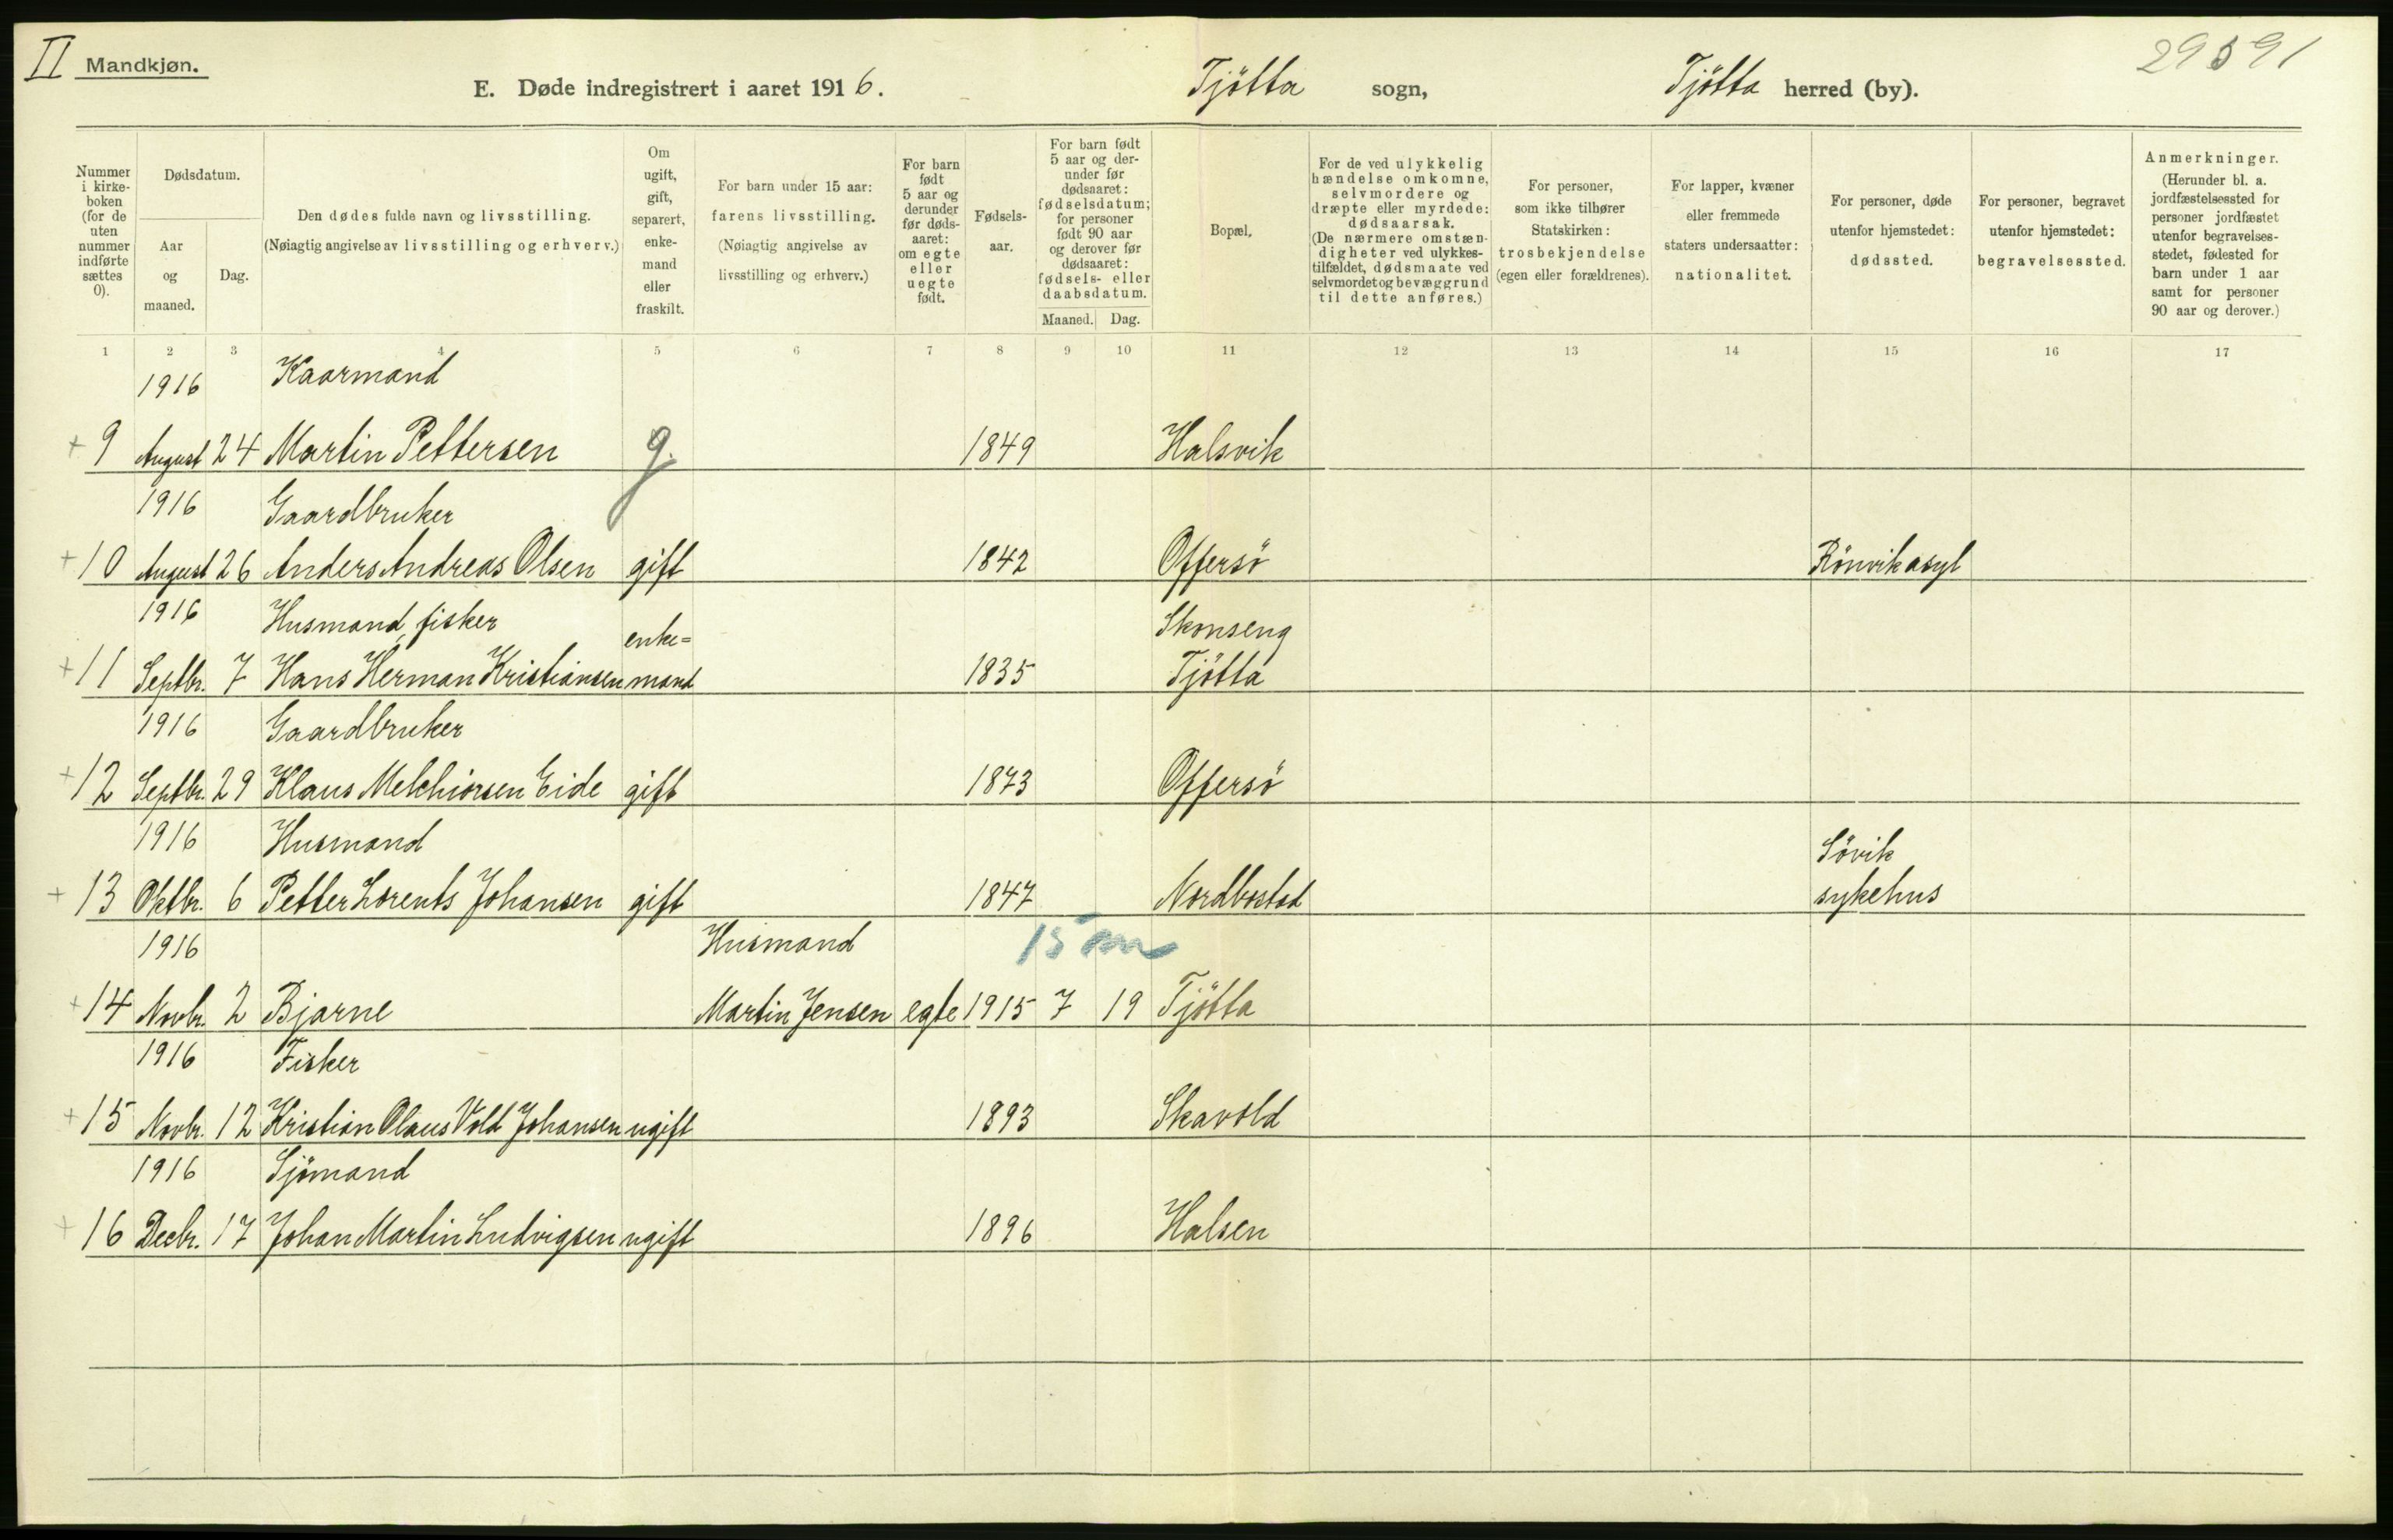 II Mandkjøn.
29591
E. Døde indregistrert i aaret 1916. Tjötta sogn, Tjötta herred (by).
Nummer i kirkeboken (for de uten nummer indførte sættes 0).
Dødsdatum.
Aar og maaned.
Dag.
Den dødes fulde navn og livsstilling.
(Nøiagtig angivelse av livsstilling og erhverv.)
Om ugift, gift, separert, enkemand eller fraskilt.
For barn under 15 aar: farens livsstilling. (Nøiagtig angivelse av livsstilling og erhverv.)
For barn født 5 aar og derunder før dødsaaret: om egte eller uegte født.
Fødselsaar.
For barn født 5 aar og derunder før dødsaaret: fødselsdatum; for personer født 90 aar og derover før dødsaaret: fødsels- eller daabsdatum.
Maaned. Dag.
Bopæl.
For de ved ulykkelig hændelse omkomne, selvmordere og dræpte eller myrdede: dødsaarsak. (De nærmere omstændigheter ved ulykkestilfældet, dødsmaate ved selvmordet og bevæggrund til dette anføres.)
For personer, som ikke tilhører Statskirken: trosbekjendelse (egen eller forældrenes).
For lapper, kvæner eller fremmede staters undersaatter: nationalitet.
For personer, døde utenfor hjemstedet: dødssted.
For personer, begravet utenfor hjemstedet: begravelsessted.
Anmerkninger. (Herunder bl. a. jordfæstelsessted for personer jordfæstet utenfor begravelsesstedet, fødested for barn under 1 aar samt for personer 90 aar og derover.)
1 2 3 4 5 6 7 8 9 10 11 12 13 14 15 16 17
1916 Kaarmand
+ 9 August 24 Martin Pettersen g. 1849 Halsvik
1916 Gaardbruker
+ 10 August 26 Anders Andreas Olsen gift 1842 Offersö Rönvik asyl
1916 Husmand, fisker enke= Skonseng
+ 11 Septbr. 7 Hans Herman Kristiansen mand 1835 Tjötta
1916 Gaardbruker
+ 12 Septbr. 29 Klaus Melchiorsen Eide gift 1873 Offersö
1916 Husmand Sövik
+ 13 Oktbr. 6 Petter Lorents Johansen gift 1847 Nordbostad sykehus
1916 Husmand 15 m
+ 14 Novbr. 2 Bjarne Martin Jensen egte 1915 7 19 Tjötta
1916 Fisker
+ 15 Novbr. 12 Kristian Olaus Vold Johansen ugift 1893 Skavold
1916 Sjömand
+ 16 Decbr. 17 Johan Martin Ludvigsen ugift 1896 Halsen